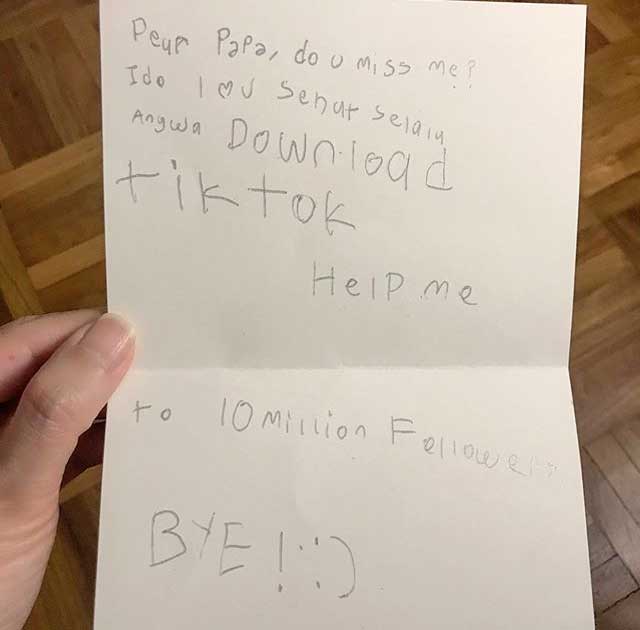 Pear Papa, do u miss me?
I do I ♡ U Sehat Selalu
Angwa Download
tiktok
Help me
to 10 million Followers
BYE! :)